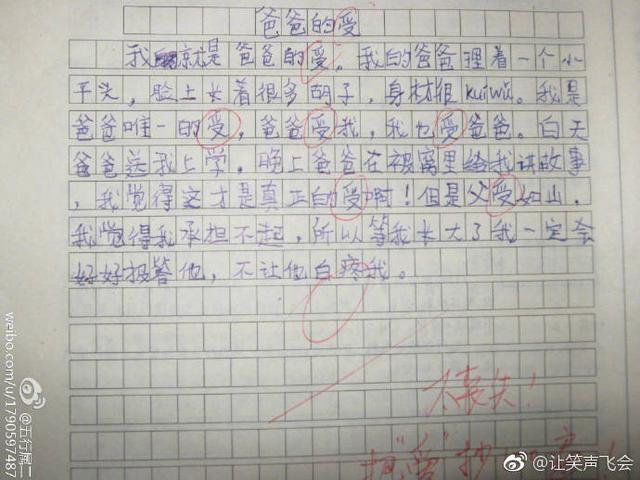 爸爸的受
我就是爸爸的受。我的爸爸理着一个小
平头，脸上长着很多胡子，身材很kuiwú。我是
爸爸唯一的受，爸爸受我，我也受爸爸。白天
爸爸送我上学。晚上爸爸在被窝里给我讲故事
，我觉得这才是真正的受啊！但是父受如山，
我觉得我承担不起，所以等我长大了我一定会
好好报答他，不让他白疼我。
太丧失！
把"爱"抄
weibo.com/u/1790597487
@五行属二
@让笑声飞会